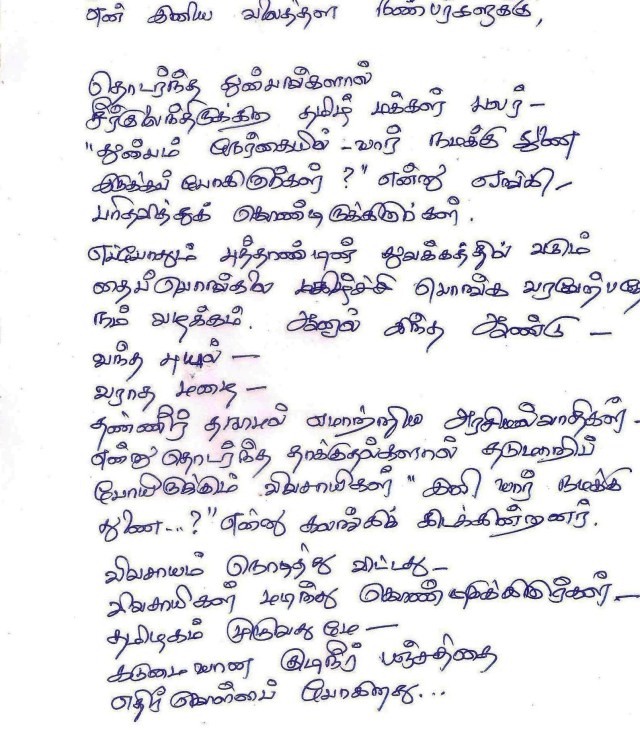 என் இனிய விவசாய நண்பர்களுக்கு,
தொடர்ந்த துன்பங்களால்
சீர்குலைந்திருக்கிற தமிழ் மக்கள் பலர் –
"துன்பம் நேர்கையில் – யார் நமக்கு துணை
இருக்கப் போகிறார்கள் ?" என்று ஏங்கி –
பரிதவித்துக் கொண்டிருக்கிறார்கள்.
எப்போதும் புத்தாண்டின் துவக்கத்தில் வரும்
தைப்பொங்கலை மகிழ்ச்சி பொங்க வரவேற்பது
நம் வழக்கம். ஆனால் இந்த ஆண்டு –
வந்த புயல் –
வராத மழை –
தண்ணீர் தராமல் ஏமாற்றிய அரசியல்வாதிகள் –
என்று தொடர்ந்த தாக்குதல்களால் தடுமாறிப்
போயிருக்கும் விவசாயிகள் "இனி யார் நமக்கு
துணை...?" என்று கலங்கிக் கிடக்கின்றனர்.
விவசாயம் நொடித்து விட்டது –
விவசாயிகள் மடிந்து கொண்டிருக்கிறார்கள் –
தமிழகம் முழுவதுமே –
கடுமையான குடிநீர் பஞ்சத்தை
எதிர்கொள்ளப் போகிறது...